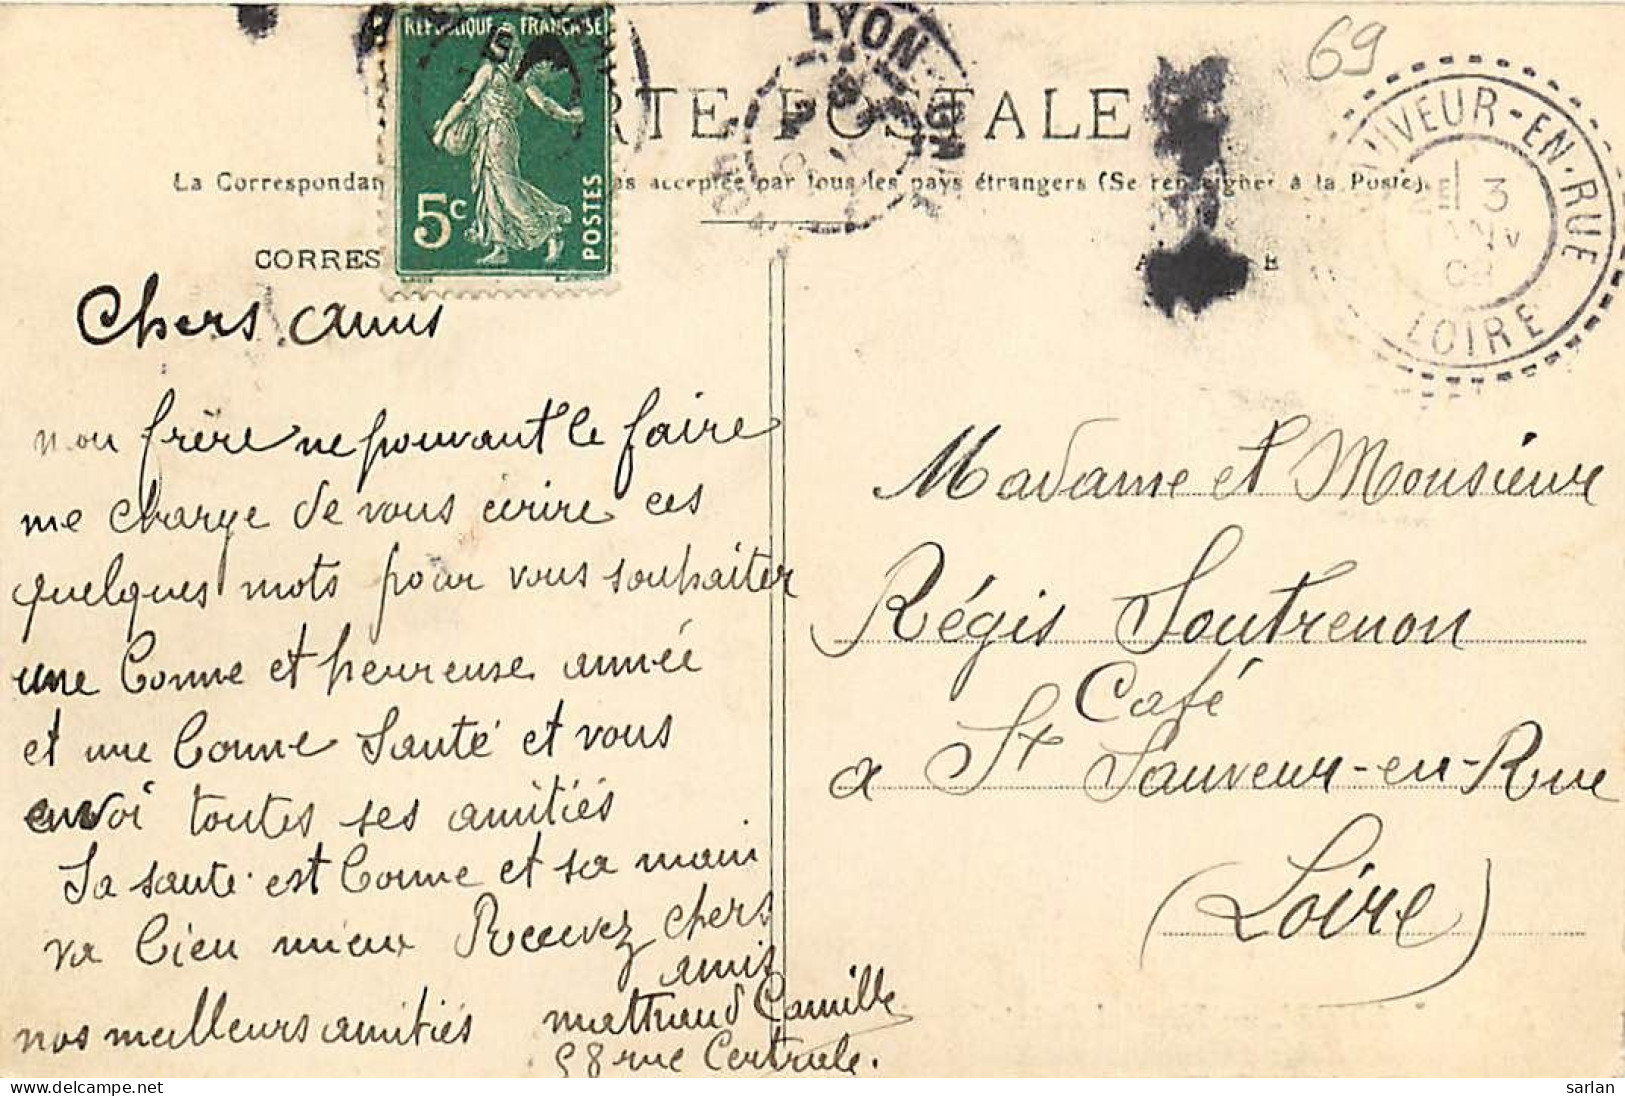 69
LYON
REPUBLIQUE FRANCAISE
5c
POSTES
RTE POSTALE
La Correspondan s acceptée par tous les pays étrangers (Se renseigner à la Poste).
CORRES
AUVEUR-EN-RUE
3
JANV
LOIRE
Chers amis
mon frère ne pouvant le faire
me charge de vous écrire ces
quelques mots pour vous souhaiter
une bonne et heureuse année
et une bonne santé et vous
envoi toutes ses amitiés
Sa santé est bonne et sa main
va bien mieux Recevez chers
amis
nos meilleurs amitiés Camille
58 rue Centrale.
Madame et Monsieur
Régis Soutrenon
Café
a St Sauveur-en-Rue
(Loire)
sarlan